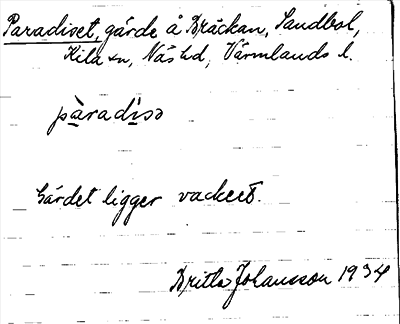 Paradiset, gärde å Bräckan, Sandbol,
Kila sn, Näs hd, Värmlands l.
pàradisɔ
Gärdet ligger vackert.
Britta Johansson 1934